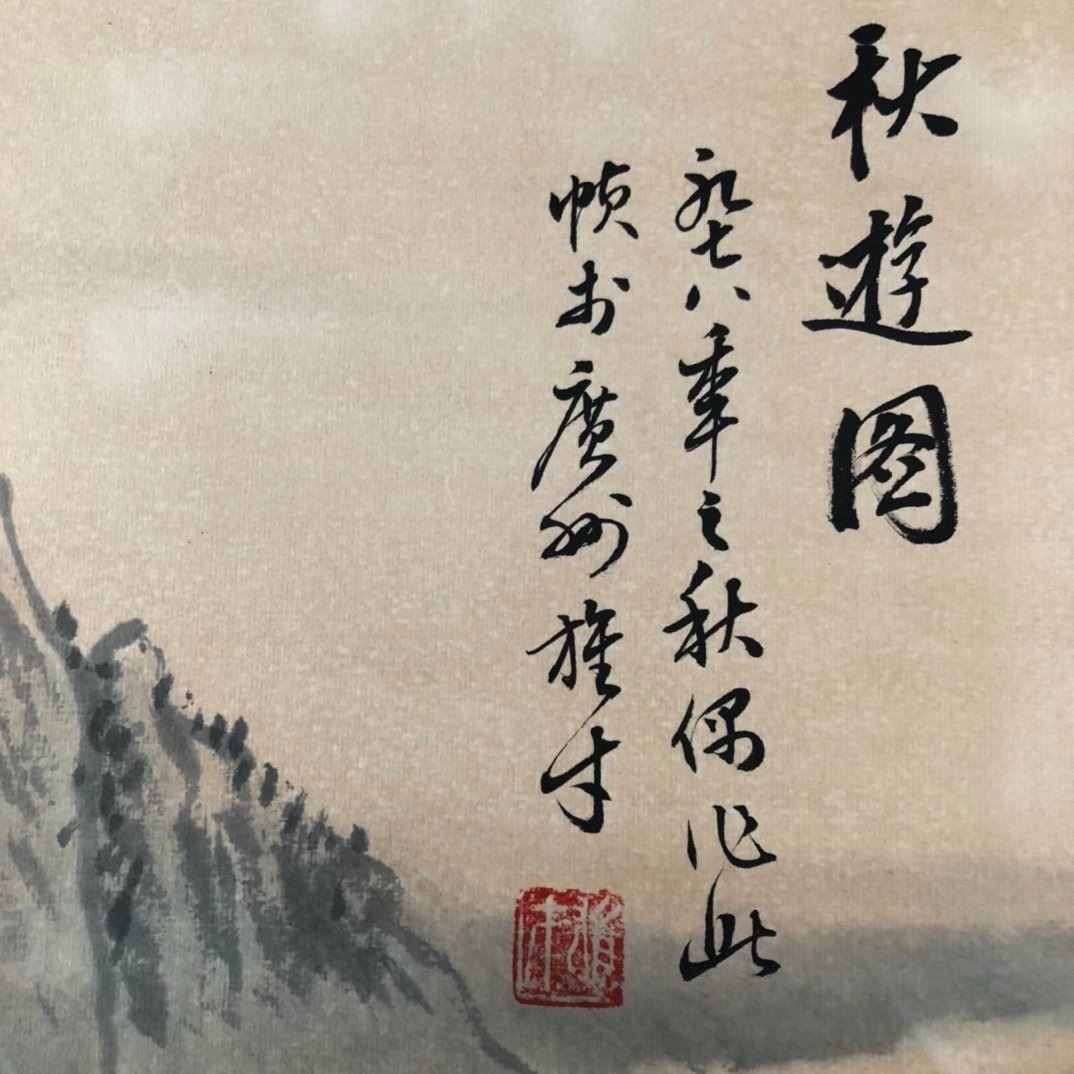 秋遊图
一九七八年之秋偶作此
帧於廣州雄才